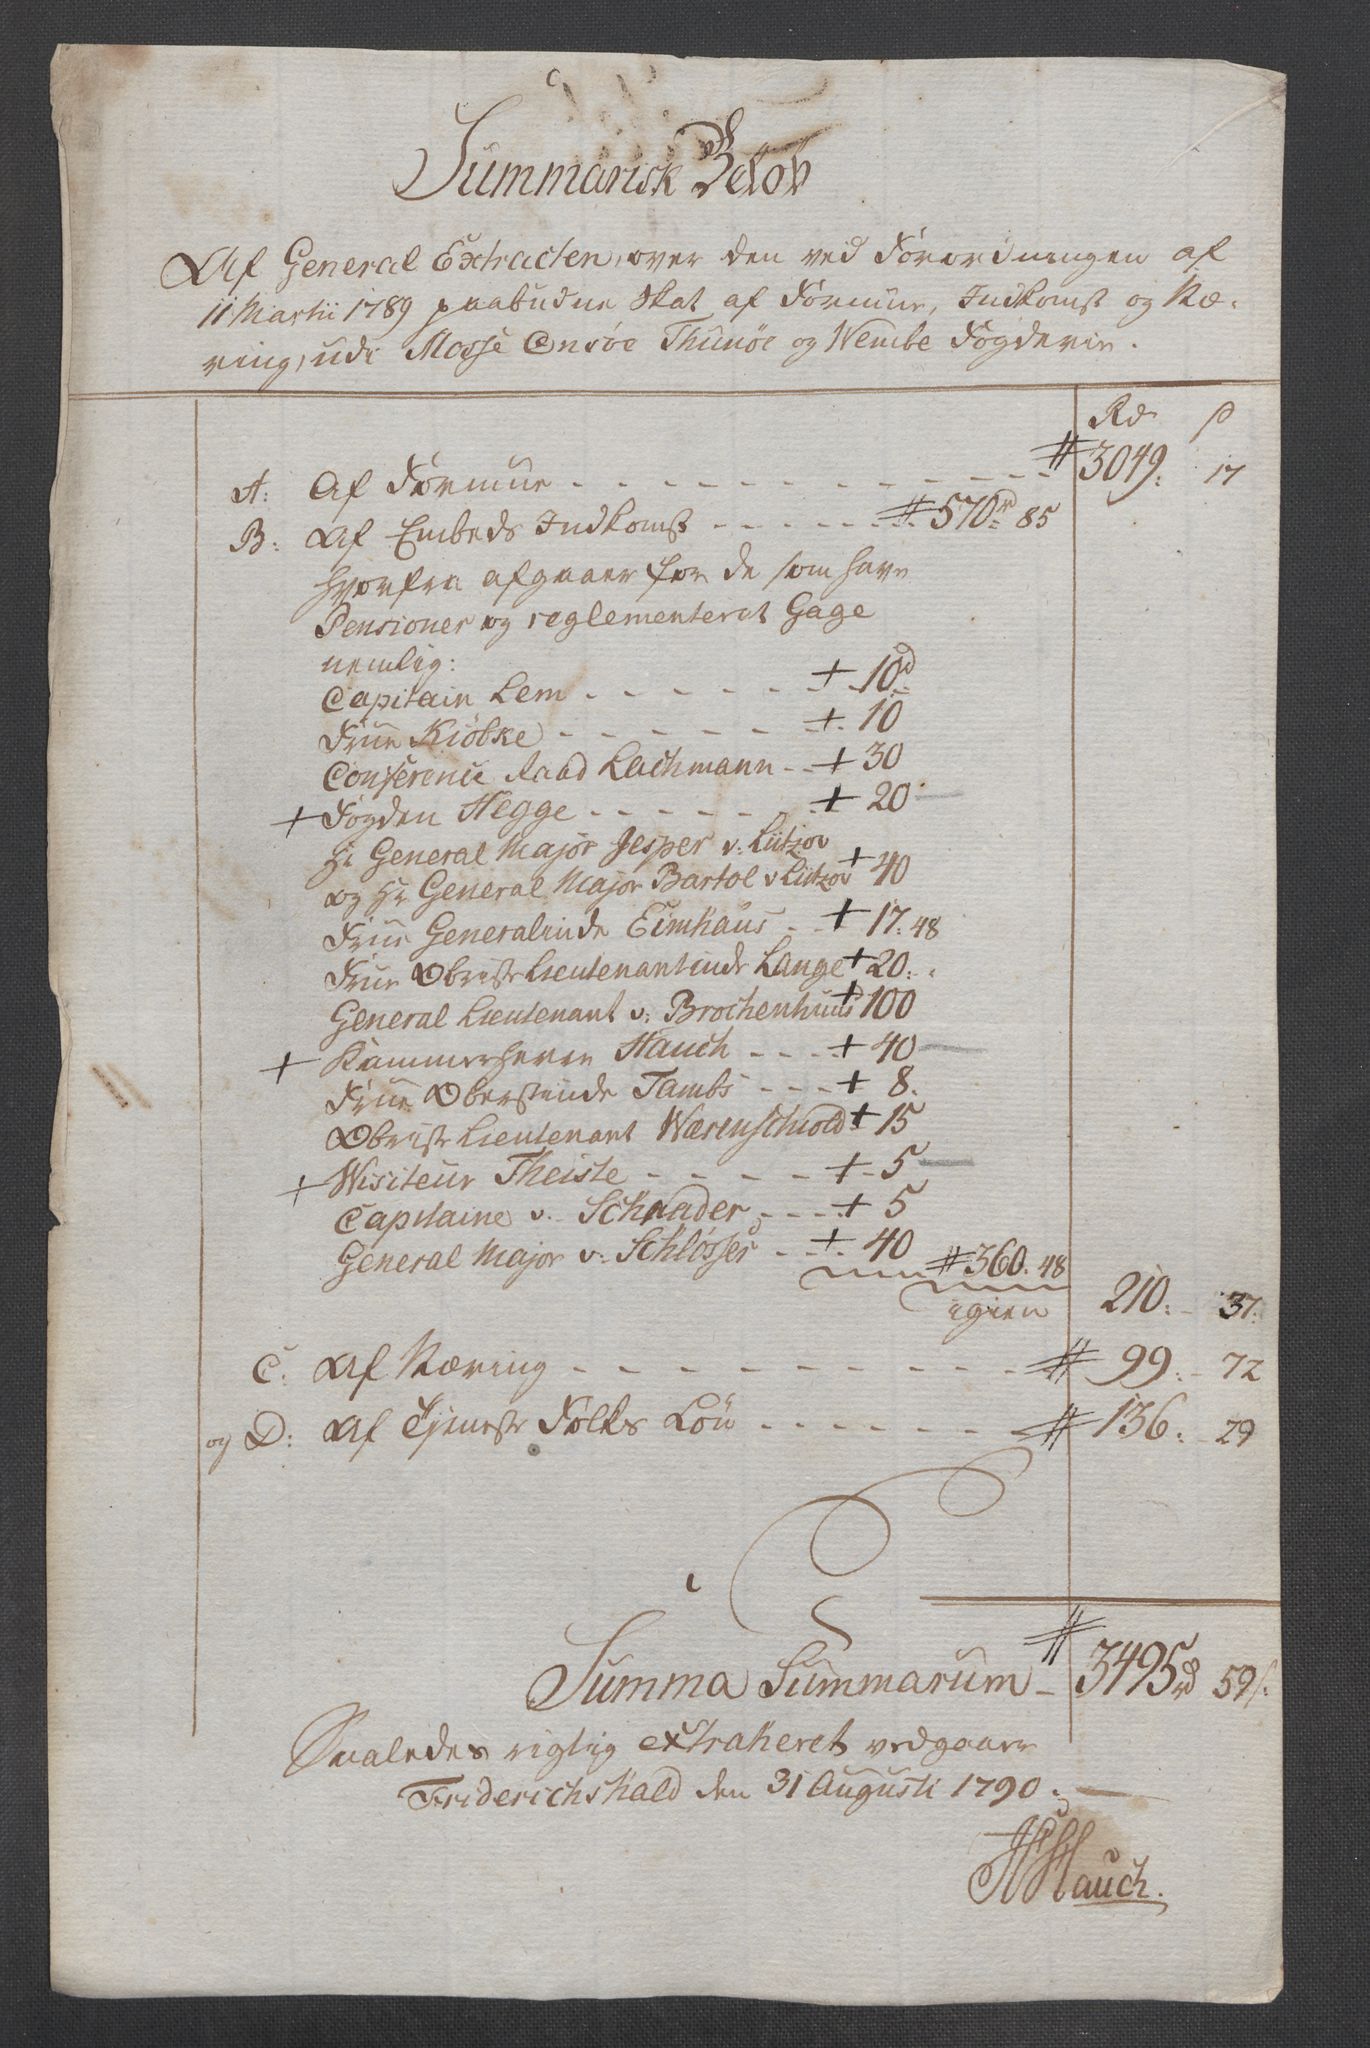 Summarisk Beløb
Af General Extracten, over den ved Forordningen af
11 Martii 1789 paabudne Skat af Formue, Indkomst og Næ-
ring, udi Mosse Onsøe Thunøe og Wembe Fogderie.
Rd ß
A: Af Formue - - - - - - # 3049. 17
B: Af Embeds Indkomst - - - - # 570rd 85
hvorfra afgaaer for de som have
Pensioner og reglementeret Gage
nemlig:
Capitain Lem - - - - + 10rd
Frue Kiøbke - - - - + 10
Conference Raad Lachmann - + 30
+ Fogden Hegge - - - - + 20
Hr General Major Jesper v: Lützov
og Hr General Major Bartol v Lützov + 40
Frue Generalinde Eimhaus - + 17. 48
Frue Obrist Lieutenantinde Lange + 20. -
General Lieutenant v: Brochenhuus + 100
+ Kammerherre Hauch - - - + 40
Frue Oberstinde Tambs - - - + 8.
Obrist Lieutenant Wærenschiold + 15
+ Wisiteur Theiste - - - - + 5
Capitaine v. Schrader - - - + 5
General Major v: Schlösser - - + 40 # 360. 48
igien 210. 37.
C. Af Næring - - - - - - # 99. 72
og D: Af Tjeneste Folks Løn - - - - # 136. 29
Summa Summarum - # 3495rd 59ß.
Saaledes rigtig extraheret vedgaaer
Friderichshald den 31 Augusti 1790.
Hauch.